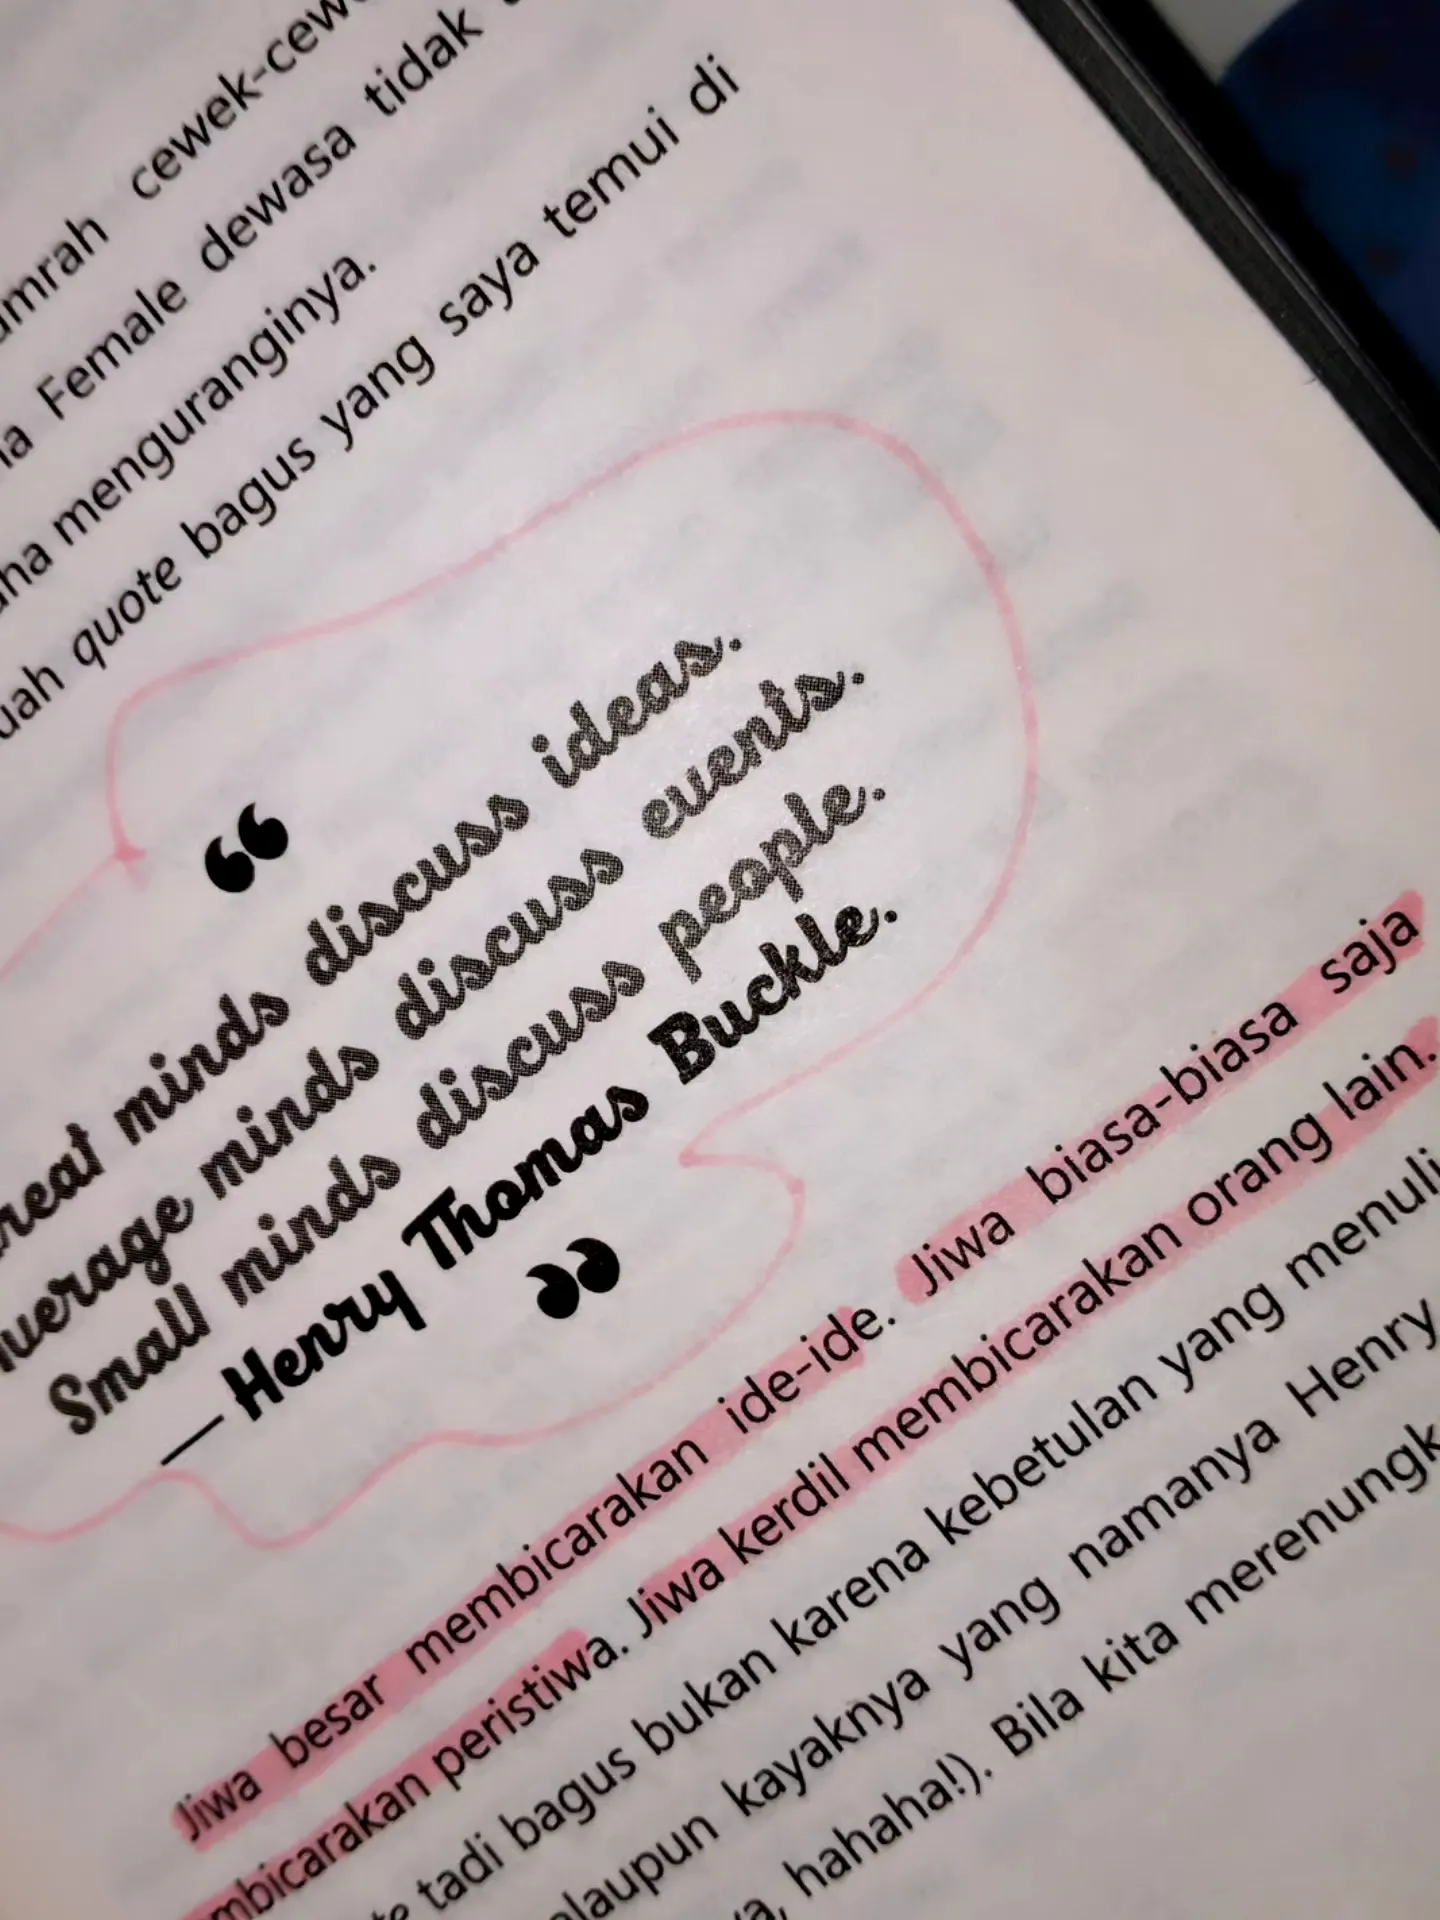 cewek-cewe
Female dewasa tidak
menguranginya.
quote bagus yang saya temui di
“
minds discuss ideas.
minds discuss events.
Small minds discuss people.
— Henry Thomas Buckle.
”
Jiwa besar membicarakan ide-ide. Jiwa biasa-biasa saja
mbicarakan peristiwa. Jiwa kerdil membicarakan orang lain.
tadi bagus bukan karena kebetulan yang menuli
kayaknya yang namanya Henry
hahaha!). Bila kita merenungk